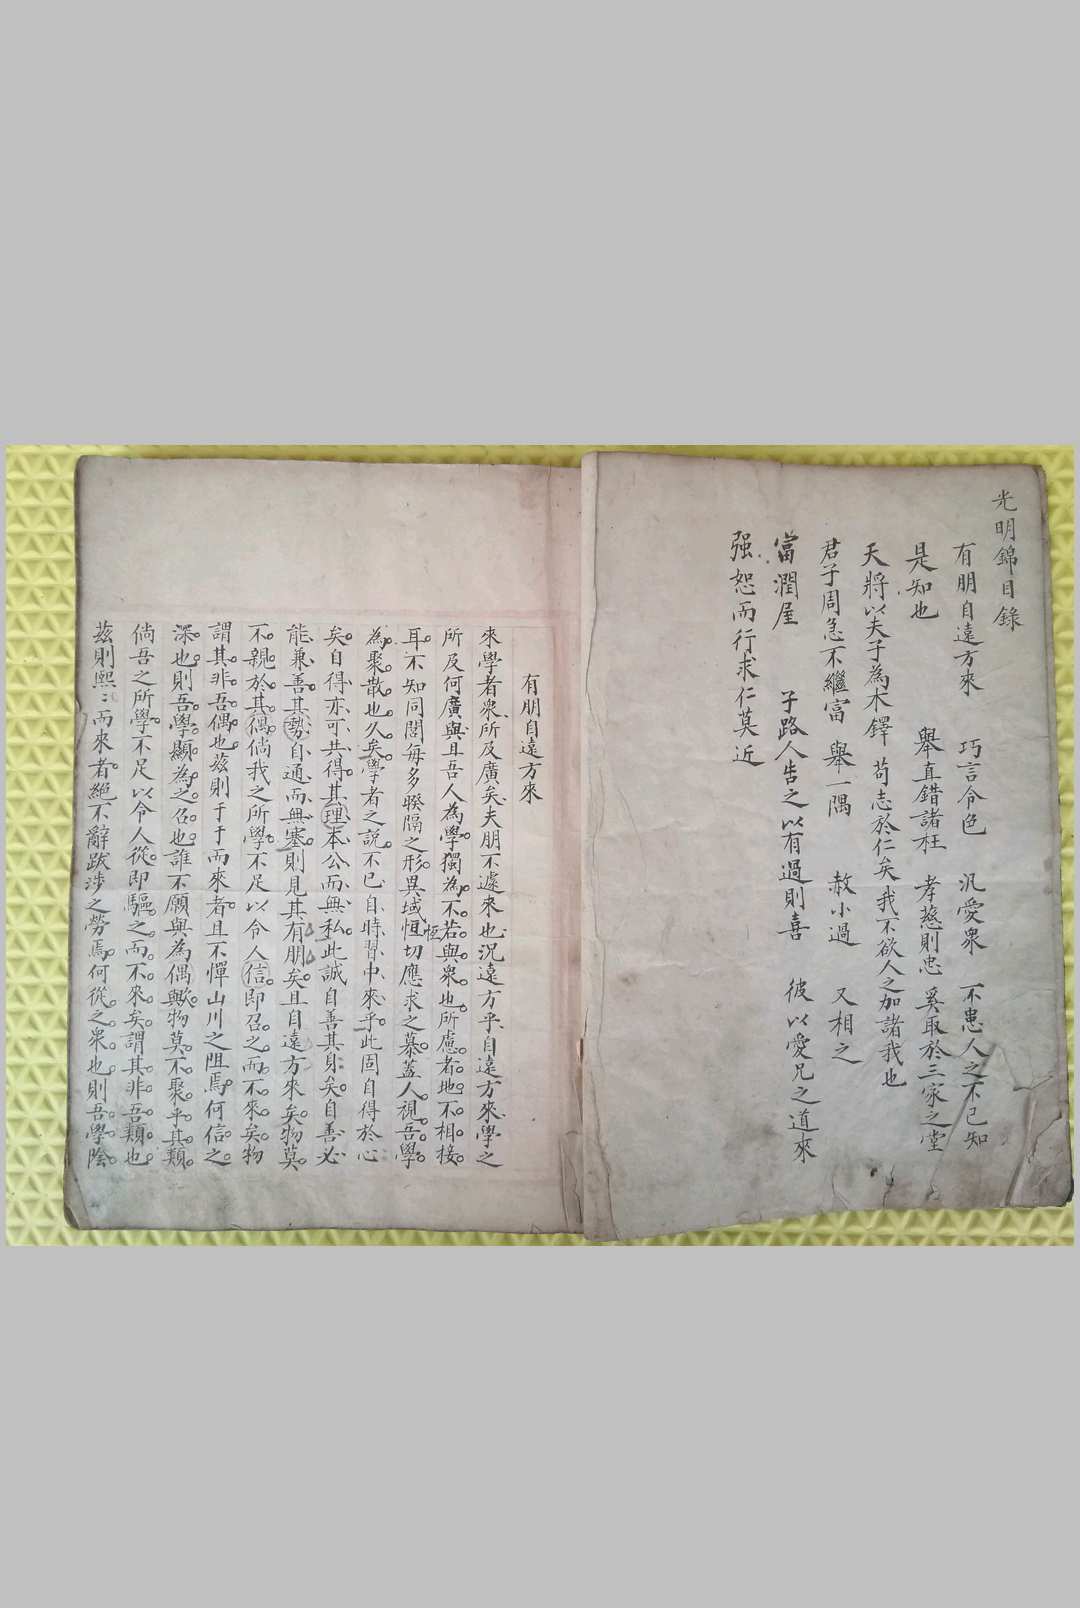 光明錦目錄
有朋自遠方來 巧言令色 汎愛衆 不患人之不己知
是知也 舉直錯諸枉 孝慈則忠 奚取於三家之堂
天將以夫子為木鐸 苟志於仁矣 我不欲人之加諸我也
君子周急不繼富 舉一隅 赦小過 又相之
富潤屋 子路人告之以有過則喜 彼以愛兄之道來
强恕而行求仁莫近
有朋自遠方來
來學者衆所及廣矣夫朋不遽來也況遠方乎自遠方來學之
所及何廣與且吾人為學獨為不若與衆也所慮者地不相接
耳不知同閭每多睽隔之形異域恒切應求之慕蓋人視吾學
恆
為聚散也久矣學者之說不已自時習中來乎此固自得於心
矣自得亦可共得其理本公而無私此誠自善其身矣自善必
能兼善其勢自通而無塞則見其有朋矣且自遠方來矣物莫
不親於其偶倘我之所學不足以令人信即召之而不來矣物
謂其非吾偶也茲則于于而來者且不憚山川之阻焉何信之
深也則吾學顯為之召也誰不願與為偶歟物莫不聚乎其類
倘吾之所學不足以令人從即驅之而不來矣謂其非吾類也
茲則熙〻而來者絕不辭跋涉之勞焉何從之衆也則吾學陰